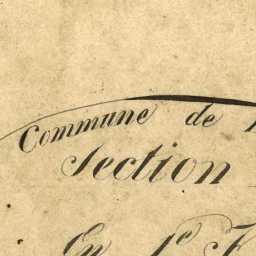 Commune de
Section
En 1e